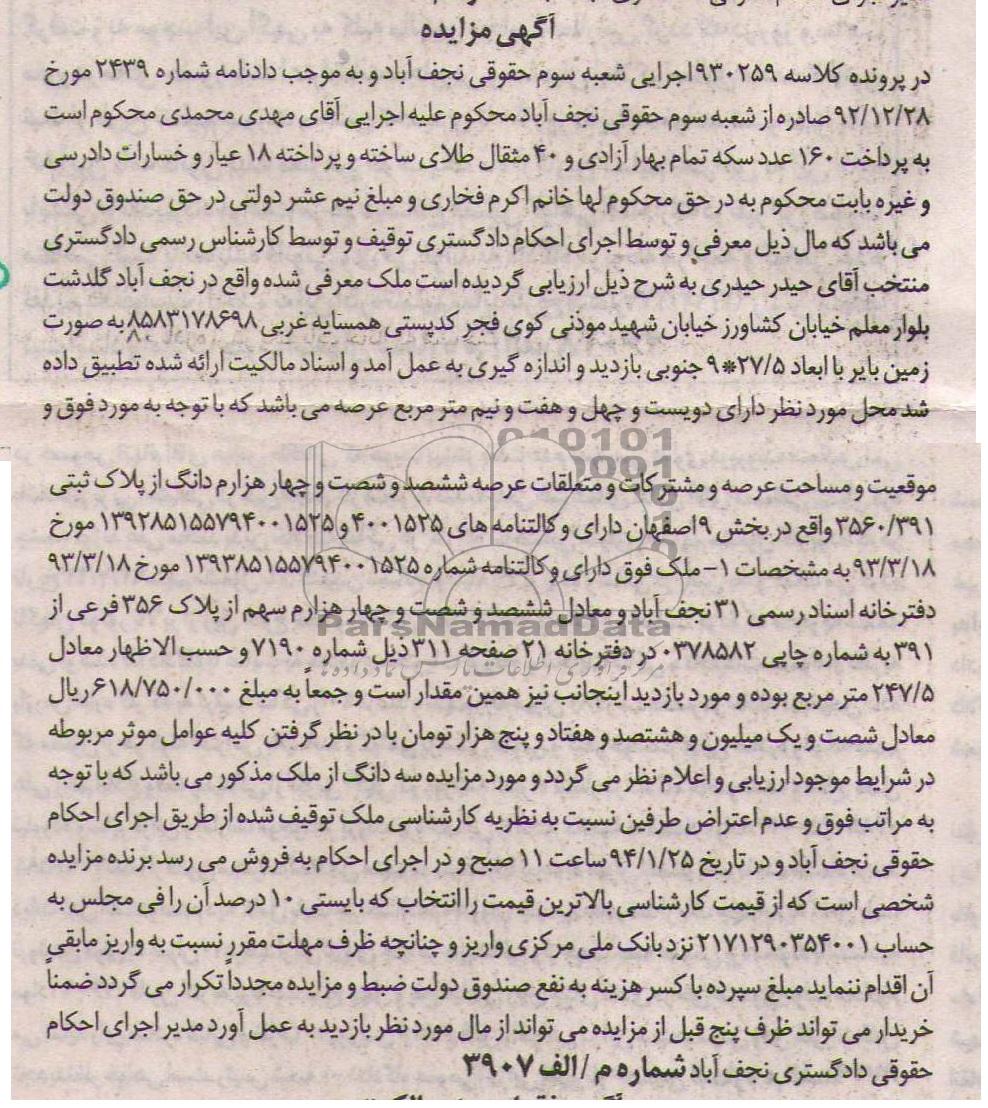 آگهی مزایده
در پرونده کلاسه ۹۳۰۲۵۹اجرایی شعبه سوم حقوقی نجف آباد و به موجب دادنامه شماره ۲۴۳۹ مورخ
۹۲/۱۲/۲۸ صادره از شعبه سوم حقوقی نجف آباد محکوم علیه اجرایی آقای مهدی محمدی محکوم است
به پرداخت ۱۶۰ عدد سکه تمام بهار آزادی و ۴۰ مثقال طلای ساخته و پرداخته ۱۸ عیار و خسارات دادرسی
و غیره بابت محکوم به در حق محکوم لها خانم اکرم فخاری و مبلغ نیم عشر دولتی در حق صندوق دولت
می باشد که مال ذیل معرفی و توسط اجرای احکام دادگستری توقیف و توسط کارشناس رسمی دادگستری
منتخب آقای حیدر حیدری به شرح ذیل ارزیابی گردیده است ملک معرفی شده واقع در نجف آباد گلدشت
بلوار معلم خیابان کشاورز خیابان شهید موذنی کوی فجر کدپستی همسایه غربی ۸۵۸۳۱۷۸۶۹۸ به صورت
زمین بایر با ابعاد ۲۷/۵*۹ جنوبی بازدید و اندازه گیری به عمل آمد و اسناد مالکیت ارائه شده تطبیق داده
شد محل مورد نظر دارای دویست و چهل و هفت و نیم متر مربع عرصه می باشد که با توجه به مورد فوق و
010101
0001
موقعیت و مساحت عرصه و مشترکات و متعلقات عرصه ششصد و شصت و چهار هزارم دانگ از پلاک ثبتی
۳۵۶۰/۳۹۱ واقع در بخش ۹ اصفهان دارای وکالتنامه های ۴۰۰۱۵۲۵ و ۱۳۹۲۸۵۱۵۵۷۹۴۰۰۱۵۲۵ مورخ
۹۳/۳/۱۸ به مشخصات ۱- ملک فوق دارای وکالتنامه شماره ۱۳۹۳۸۵۱۵۵۷۹۴۰۰۱۵۲۵ مورخ ۹۳/۳/۱۸
دفترخانه اسناد رسمی ۳۱ نجف آباد و معادل ششصد و شصت و چهار هزارم سهم از پلاک ۳۵۶ فرعی از
ParsNamadData
۳۹۱ به شماره چاپی ۰۳۷۸۵۸۲ در دفترخانه ۲۱ صفحه ۳۱۱ ذیل شماره ۷۱۹۰ و حسب الاظهار معادل
۲۴۷/۵ متر مربع بوده و مورد بازدید اینجانب نیز همین مقدار است و جمعاً به مبلغ ۶۱۸/۷۵۰/۰۰۰ریال
معادل شصت و یک میلیون و هشتصد و هفتاد و پنج هزار تومان با در نظر گرفتن کلیه عوامل موثر مربوطه
در شرایط موجود ارزیابی و اعلام نظر می گردد و مورد مزایده سه دانگ از ملک مذکور می باشد که با توجه
به مراتب فوق و عدم اعتراض طرفین نسبت به نظریه کارشناسی ملک توقیف شده از طریق اجرای احکام
حقوقی نجف آباد و در تاریخ ۹۴/۱/۲۵ ساعت ۱۱ صبح و در اجرای احکام به فروش می رسد برنده مزایده
شخصی است که از قیمت کارشناسی بالاترین قیمت را انتخاب که بایستی ۱۰ درصد آن را فی مجلس به
حساب ۲۱۷۱۲۹۰۳۵۴۰۰۱ نزد بانک ملی مرکزی واریز و چنانچه ظرف مهلت مقرر نسبت به واریز مابقی
آن اقدام ننماید مبلغ سپرده با کسر هزینه به نفع صندوق دولت ضبط و مزایده مجدداً تکرار می گردد ضمناً
خریدار می تواند ظرف پنج قبل از مزایده می تواند از مال مورد نظر بازدید به عمل آورد مدیر اجرای احکام
حقوقی دادگستری نجف آباد شماره م / الف ۳۹۰۷